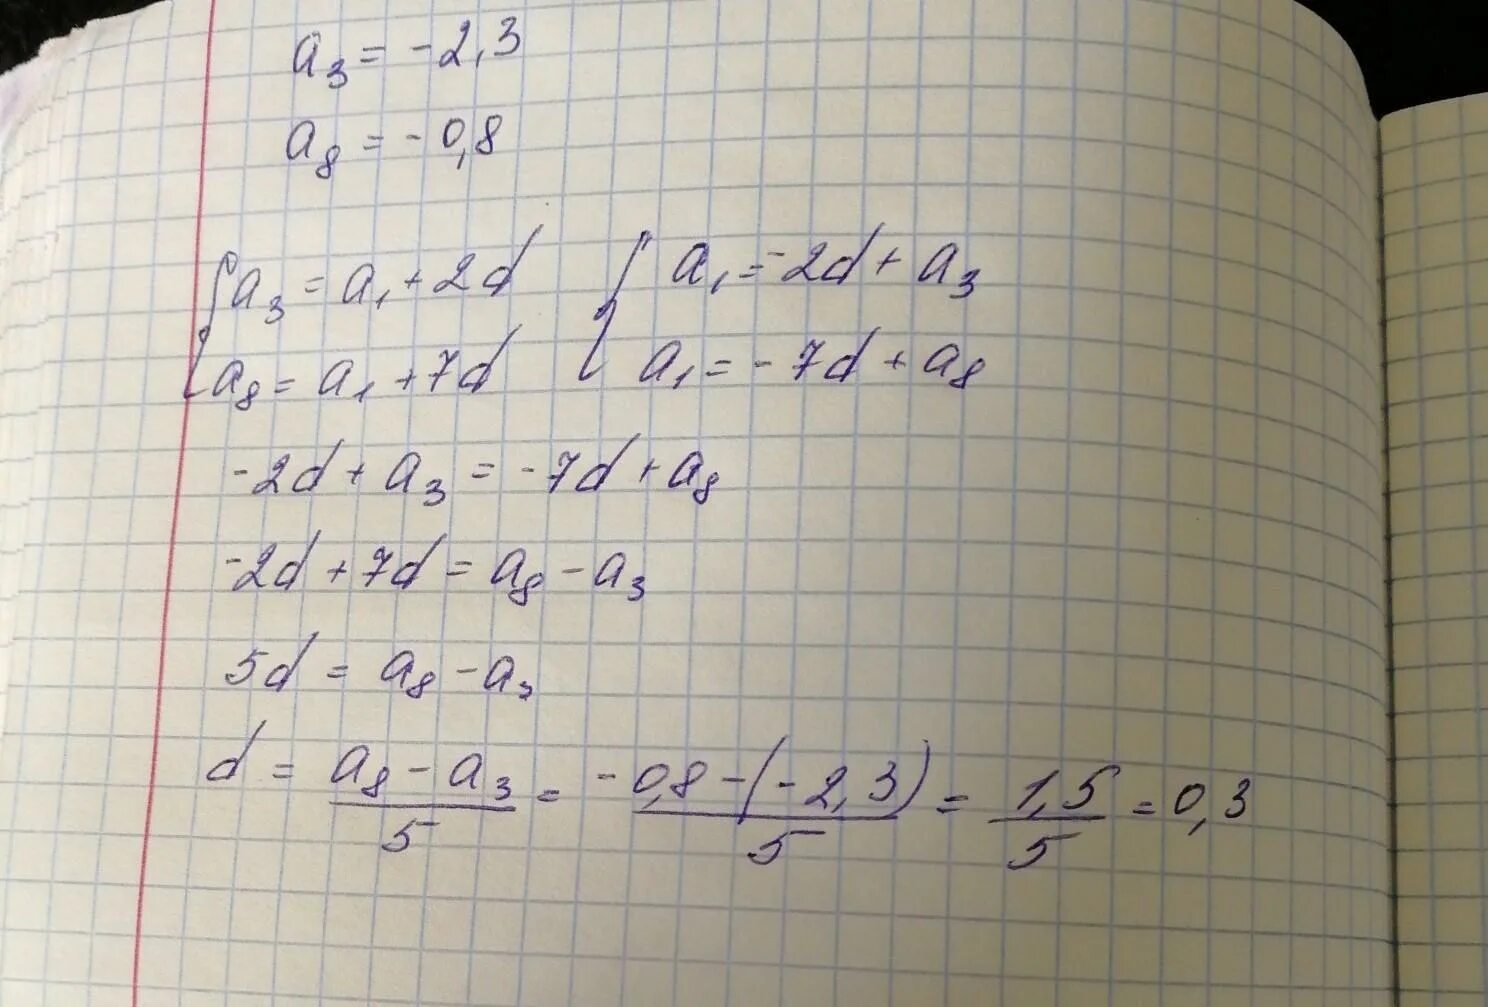 a₃ = -2,3
a₈ = -0,8
{ a₃ = a₁ + 2d { a₁ = -2d + a₃
a₈ = a₁ + 7d a₁ = -7d + a₈
-2d + a₃ = -7d + a₈
-2d + 7d = a₈ - a₃
5d = a₈ - a₃
d = (a₈ - a₃)/5 = (-0,8 - (-2,3))/5 = 1,5/5 = 0,3